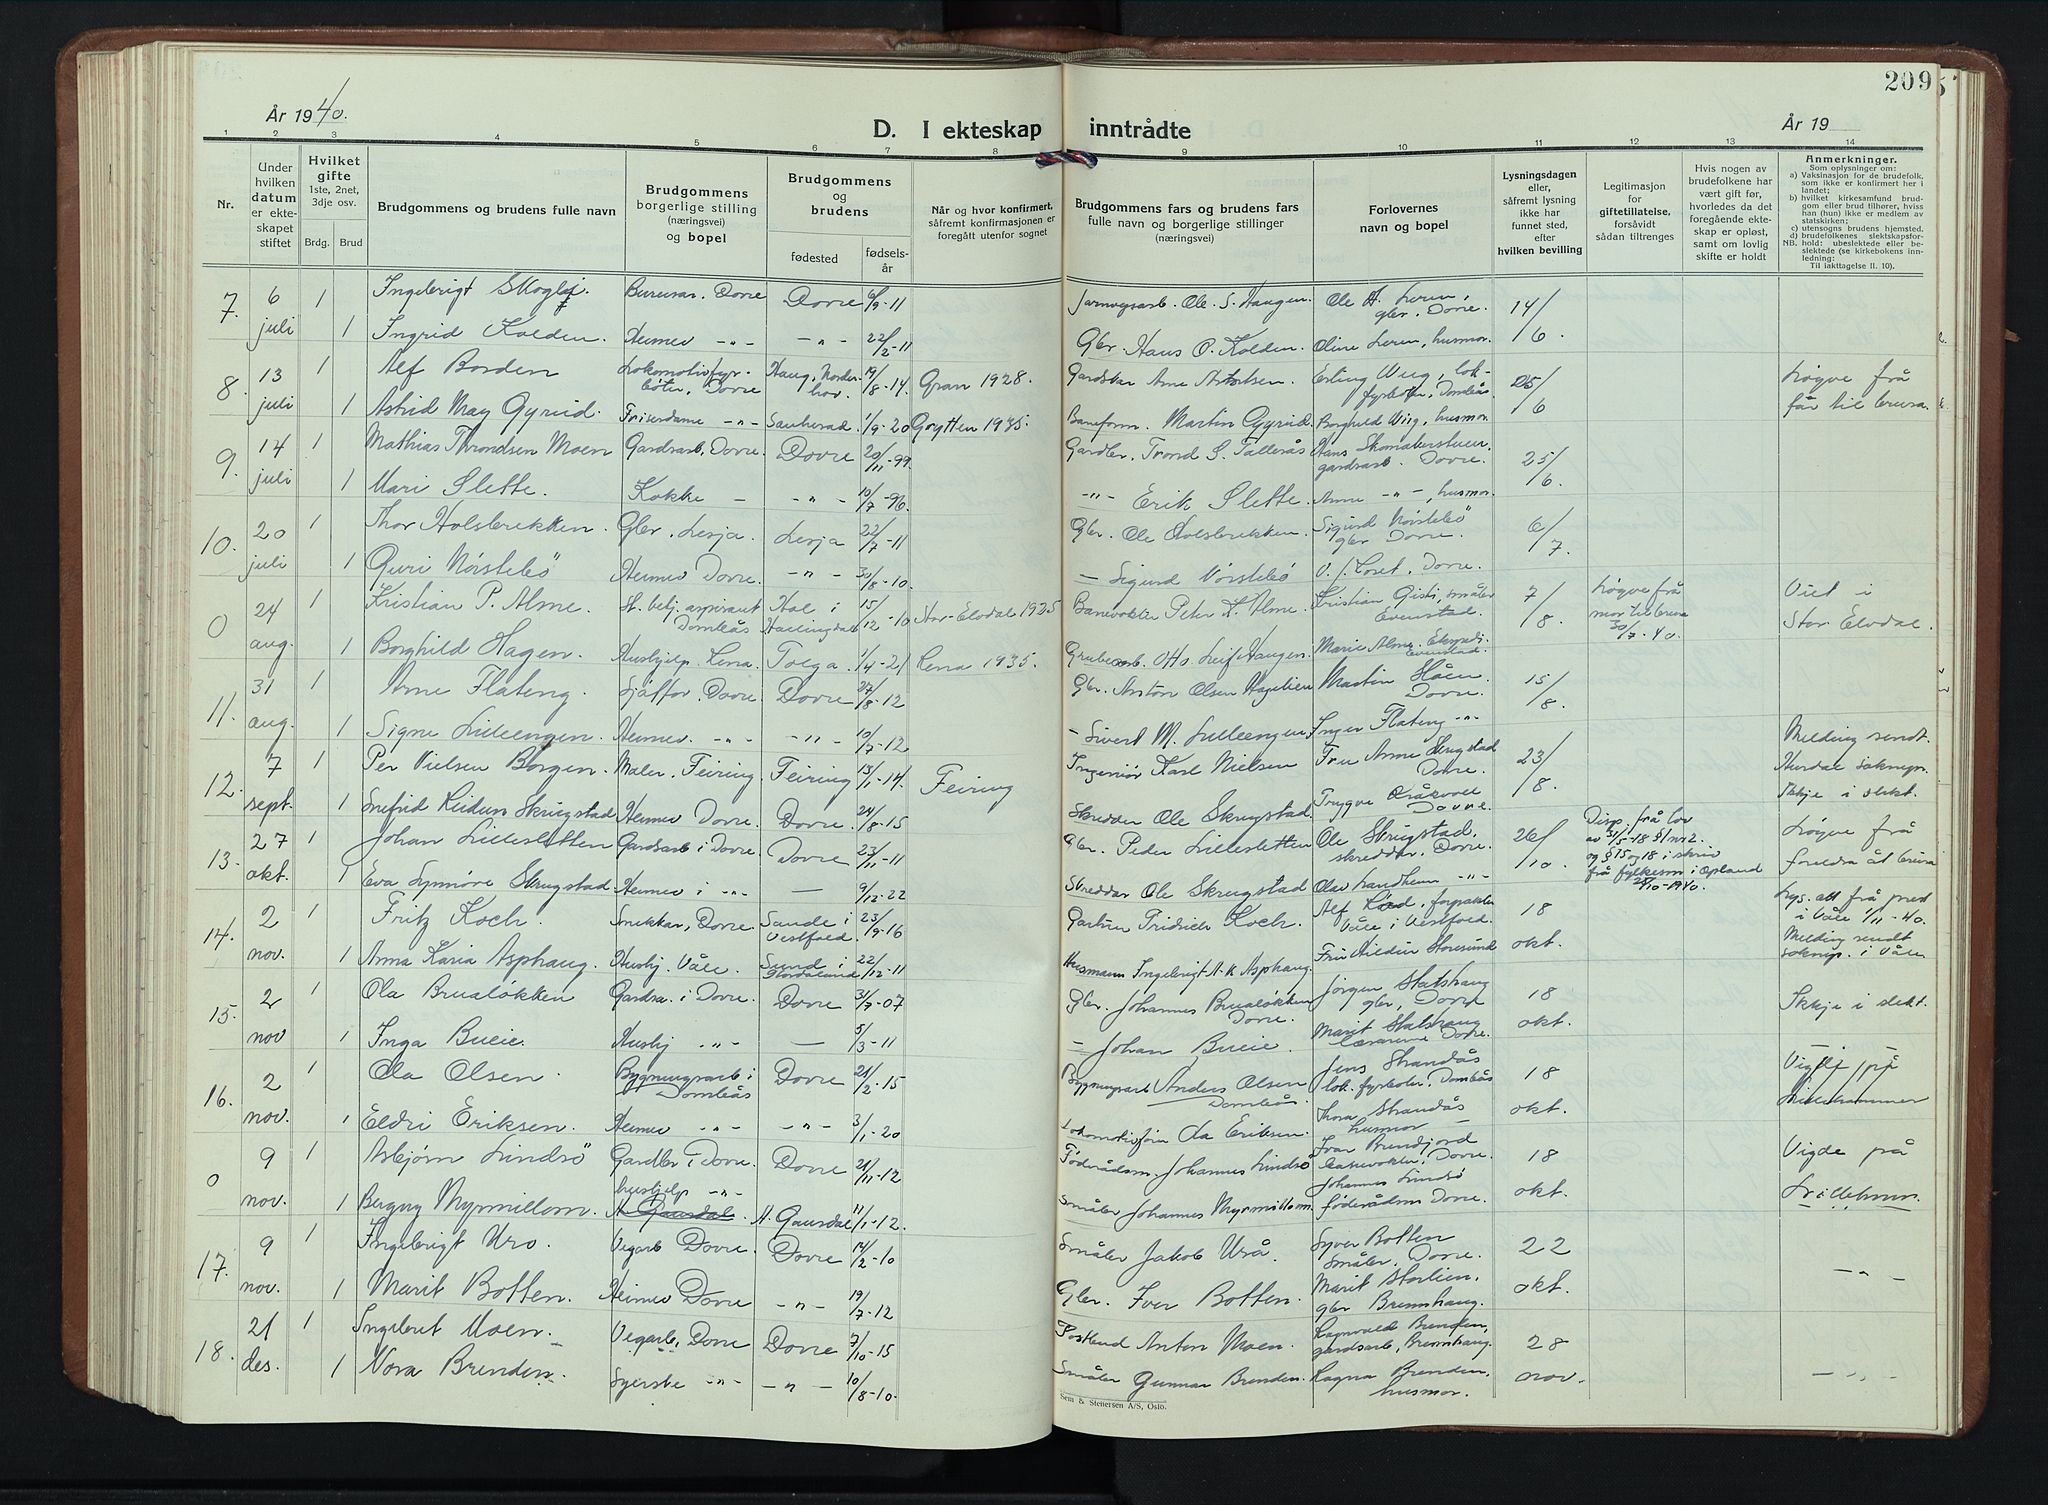 209
År 1940.
D. I ekteskap inntrådte
År 19
1 2 3 4 5 6 7 8 9 10 11 12 13 14
Nr.
Under hvilken datum er ekteskapet stiftet
Hvilket gifte 1ste, 2net, 3dje osv.
Brdg. Brud
Brudgommens og brudens fulle navn
Brudgommens borgerlige stilling (næringsvei) og bopel
Brudgommens og brudens
fødested
fødselsår
Når og hvor konfirmert, såfremt konfirmasjonen er foregått utenfor sognet
Brudgommens fars og brudens fars fulle navn og borgerlige stillinger (næringsvei)
Forlovernes navn og bopel
Lysningsdagen eller, såfremt lysning ikke har funnet sted, efter hvilken bevilling
Legitimasjon for giftetillatelse, forsåvidt sådan tiltrenges
Hvis nogen av brudefolkene har vært gift før, hvorledes da det foregående ekteskap er opløst, samt om lovlig skifte er holdt
Anmerkninger.
Som oplysninger om:
a) Vaksinasjon for de brudefolk, som ikke er konfirmert her i landet;
b) hvilket kirkesamfund brudgom eller brud tilhører, hviss han (hun) ikke er medlem av statskirken;
c) utensogns brudens hjemsted.
d) brudefolkenes slektskapsforhold: ubeslektede eller beslektede (se kirkebokens innledning:
NB.
Til iakttagelse II. 10).
7. 6 juli 1 Ingebrigt Skogli. Bureisar. Dovre Dovre 6/9-11 Jarnvegsarb. Ole S. Haugen. Ole H. Leren, gbr. Dovre. 14/6.
1 Ingrid Kolden. Heimev -"- -"- 22/2-11 Gbr. Hans P. Kolden. Oline Leren, husmor.
8. 13 juli 1 Alf Borden Lokomotivfyrbøter, Dovre Haug, Norderhov. 19/8-14. Gran 1928. Gardskar Arne Erling Wiig, lok-fyrbøter, Dombås. 25/6 Løgve frå far til brura.
1 Astrid May Gyrud. Friserdame -"- Sauherad. 1/9-20 Grytten 1935. Baneform. Martin Gyrud. Borghild Wiig, husmor.
9. 14 juli 1 Mathias Throndsen Moen Gardsarb. Dovre. Dovre 20/11-99. Gardbr. Trond S. Tallerås Hans gardsarb. Dovre. 25/6
1 Mari Slette. Kokke - -"- 10/7-96. -"- Erik Slette. Anne -"-, husmor.
10. 20 juli 1 Thor Holsbrekken. Gbr. Lesja. Lesja 22/7-11 Gbr. Ole Holsbrekken. Sigurd Nørstebö gbr Dovre. 6/7.
1 Guri Nørstebö Heimev Dovre. -"- 30/8-10. - Sigurd Nørstebö Dovre.
0 24 aug. 1 Kristian P. Alme. St. betj. aspirant Dombås Hol i Hallingdal 15/12-10 Stor-Elvdal 1925 Banevokter Peter K. Alme. Kristian småbr Evenstad. 7/8. Løgve frå mor til brura 30/7-40. Viet i Stor Elvdal.
1 Borghild Hagen. Hushjelp. Rena. Tolga. 1/4-21 Rena 1935. Grubearb. Otto Leif Haugen. Marie Alme. Evenstad.
11. 31 aug. 1 Arne Flateng. Sjåffør. Dovre. Dovre 27/8-12 Gbr. Anton Olsen Martin Dovre. 15/8.
1 Signe Lilleengen. Heimev. -"- -"- 10/7-12 - Sivert M. Lilleengen Inger Flateng -"-
12. 7 sept. 1 Per Nielsen Borgen. Maler. Feiring. Feiring 13/1-14. Feiring Ingeniør Karl Nielsen Fru Anne Skrugstad Dovre. 23/8. Melding sendt. Hurdal soknepr. Ikkje i slekt.
1 Snefrid Reidun Skrugstad Heimev Dovre. Dovre. 24/8-15 Skredder Ole Skrugstad. Trygve Dovre.
13. 27 okt. 1 Johan Lillesletten Gardsarb i Dovre. Dovre 23/11-11 Gbr. Peder Lillesletten Ole Skrugstad. skredder, Dovre. 26/10. Disp. frå lov av 31/5-18 § 1 nr 2. og § 15 og 18 i skriv frå fylkesm i Opland 28/10-1940. Løgve frå foreldra åt brura
1 Eva Synnöve Skrugstad Heimev i -"- — 9/12-22 Skreddar Ole Skrugstad Olav Landheim -"-
14. 2 nov. 1 Fritz Koch. Snikkar, Dovre. Sande i Vestfold. 23/9-16 Gartner Fridrich Koch. Alf forpakter Våle i Vestfold. 18 okt. Lys. att frå prest i Våle 1/11-40. Melding sendt soknepr. i Våle
1 Anna Karia Asphaug. Hushj. Våle. Sund i 22/12-11 Husmann Ingebrigt A. K Asphaug. Fru
15. 2 nov 1 Ola Brualökken Gardsa. i Dovre. Dovre 31/7-07 Gbr. Johannes Brualökken Dovre. Jørgen Statshaug gbr, Dovre 18 okt. Ikkje i slekt.
1 Inga Bueie. Hushj -"- — 5/3-11 - Johan Bueie. Marit Statshaug Dovre.
16. 2 nov. 1 Ola Olsen. Bygningsarb i Dombås Dovre 21/2-15 Bygningsarb Anders Olsen Dombås. Jens Strandås lok. fyrbøter, Dombås 18 okt. Vigde på Lillehammer
1 Eldri Eriksen. Heimev -"- -"- 3/1-20 Lokomotivför. Ola Eriksen. Thora Strandås husmor -
0 9 nov. 1 Asbjørn Lindsö Gardbr i Dovre. Dovre 21/11-12 Föderådsm. Johannes Lindsö Ivar Brendjord banevokter, Dovre. 18 okt. Vigde på Lillehmr.
1 Bergny Myrmillom. hushjelp -"- A Gausdal. A. Gausdal 11/1-12. Småbr Johannes Myrmillom. Johannes Lindsö föderådsm Dovre.
17. 9 nov. 1 Ingebrigt Uro. Vegarb Dovre. Dovre 14/2-10 Småbr Jakob Urå. Syver Botten Småbr. Dovre. 22 okt. -"-
1 Marit Botten. Heimev Dovre -"- 19/7-12 Gbr. Iver Botten. Marit Storlien. gbr Brennhaug.
18. 21 des. 1 Ingebret Moen. Vegarb. Dovre Dovre 7/10-15 Postbud Anton Moen. Ragnvald Brenden, gardsarb, Brennhaug. 28 nov. -"-
1 Nora Brenden. Syerske -"- -"- 10/8-10. Småbr Gunnar Brenden. Ragna Brenden, husmor.
Sem & Stenersen A/S, Oslo.